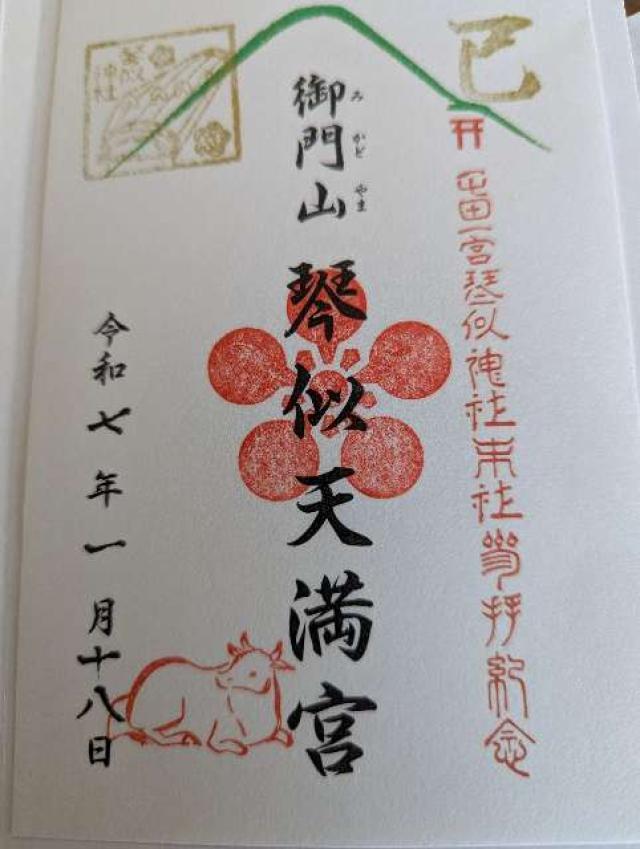 巳
屯田一宮琴似神社末社参拝紀念
御門山
みかどやま
琴似天満宮
令和七年一月十八日
琴似神社